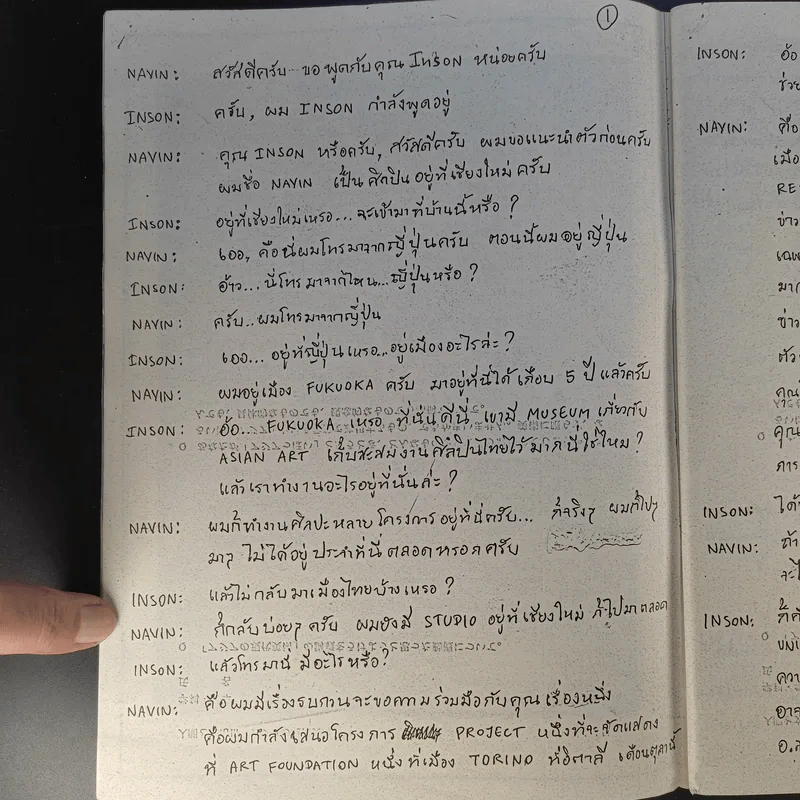 1
NAVIN: สวัสดีครับ ขอพูดกับคุณ INSON หน่อยครับ
INSON: ครับ, ผม INSON กำลังพูดอยู่
NAVIN: คุณ INSON หรือครับ, สวัสดีครับ ผมขอแนะนำตัวก่อนครับ
ผมชื่อ NAVIN เป็นศิลปินอยู่ที่เชียงใหม่ครับ
INSON: อยู่ที่เชียงใหม่เหรอ... จะเข้ามาที่บ้านนี้หรือ ?
NAVIN: เออ, คือนี่ผมโทรมาจากญี่ปุ่นครับ ตอนนี้ผมอยู่ญี่ปุ่น
INSON: อ้าว... นี่โทรมาจากไหน... ญี่ปุ่นหรือ ?
NAVIN: ครับ.. ผมโทรมาจากญี่ปุ่น
INSON: เออ... อยู่ที่ญี่ปุ่นเหรอ... อยู่เมืองอะไรล่ะ ?
NAVIN: ผมอยู่เมือง FUKUOKA ครับ มาอยู่ที่นี่ได้เกือบ 5 ปีแล้วครับ
INSON: อ้อ... FUKUOKA เหรอ ที่นั่นดีนี่ เขามี MUSEUM เกี่ยวกับ
ASIAN ART เก็บสะสมงานศิลปินไทยไว้มากนี่ใช่ไหม ?
แล้วเราทำงานอะไรอยู่ที่นั่นล่ะ ?
NAVIN: ผมก็ทำงานศิลปะหลายโครงการอยู่ที่นี่ครับ... ก็จริงๆ ผมก็ไปๆ
มาๆ ไม่ได้อยู่ประจำที่นี่ตลอดหรอกครับ
INSON: แล้วไม่กลับมาเมืองไทยบ้างเหรอ ?
NAVIN: ก็กลับบ่อยๆ ครับ ผมยังมี STUDIO อยู่ที่เชียงใหม่ ก็ไปมาตลอด
INSON: แล้วโทรมานี่ มีอะไรหรือ ?
NAVIN: คือผมมีเรื่องรบกวนจะขอความร่วมมือกับคุณเรื่องหนึ่ง
คือผมกำลังเสนอโครงการ PROJECT หนึ่งที่จะจัดแสดง
ที่ ART FOUNDATION หนึ่งที่เมือง TORINO ที่อิตาลี เดือนตุลานี้
INSON:
ช่วย
NAVIN: คือ
เมือ
RE
ข่าว
มา
ข่าว
ตัว
คุณ
คุณ
การ
INSON: ได้
NAVIN: ถ้า
จะไ
INSON: ก็
ความ
อาจ